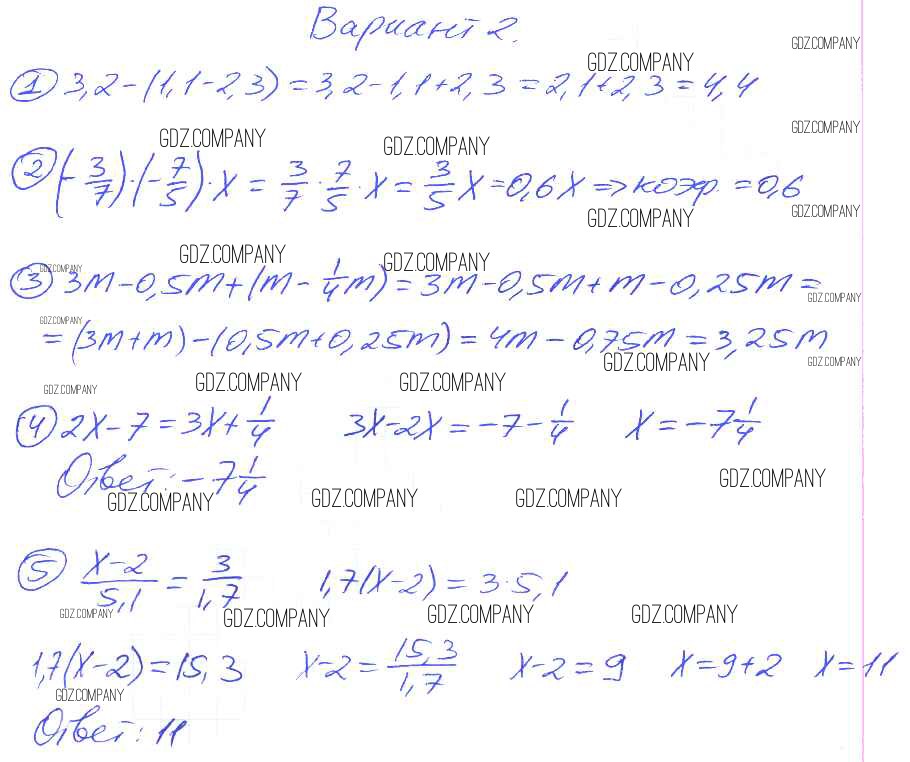 Вариант 2.
GDZ.COMPANY GDZ.COMPANY
① 3,2-(1,1-2,3)=3,2-1,1+2,3=2,1+2,3=4,4
GDZ.COMPANY GDZ.COMPANY GDZ.COMPANY
② (-3/7)·(-7/5)·x = 3/7·7/5·x = 3/5x=0,6x⇒коэф.=0,6
GDZ.COMPANY GDZ.COMPANY
GDZ.COMPANY GDZ.COMPANY GDZ.COMPANY
③ 3m-0,5m+(m-1/4m)=3m-0,5m+m-0,25m=
GDZ.COMPANY GDZ.COMPANY
=(3m+m)-(0,5m+0,25m)=4m-0,75m=3,25m
GDZ.COMPANY GDZ.COMPANY
GDZ.COMPANY GDZ.COMPANY GDZ.COMPANY
④ 2x-7=3x+1/4 3x-2x=-7-1/4 x=-7 1/4
Ответ: -7 1/4
GDZ.COMPANY GDZ.COMPANY GDZ.COMPANY GDZ.COMPANY
⑤ x-2/5,1 = 3/1,7 1,7(x-2)=3·5,1
GDZ.COMPANY GDZ.COMPANY GDZ.COMPANY GDZ.COMPANY
1,7(x-2)=15,3 x-2=15,3/1,7 x-2=9 x=9+2 x=11
GDZ.COMPANY
Ответ: 11